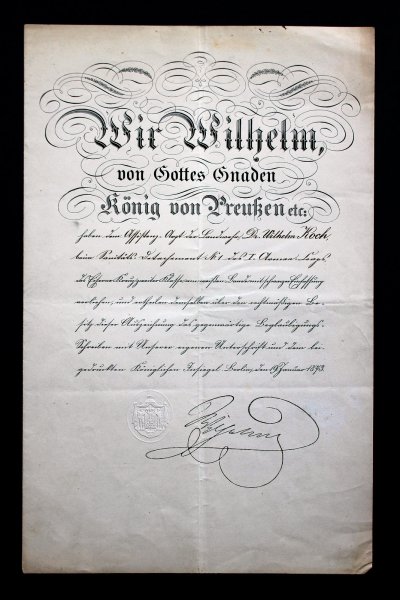 Wir Wilhelm,
von Gottes Gnaden
König von Preußen etc:
haben dem Assistenz-Arzt der Landwehr, Dr. Wilhelm Koch,
beim Sanitäts-Detachement No 1 des I. Armee-Corps
das Eiserne Kreuz zweiter Klasse am weißen
verliehen, und ertheilen demselben über den rechtmäßigen Be-
sitz dieser Auszeichnung das gegenwärtige Beglaubigungs-
Schreiben mit Unserer eigenen Unterschrift und dem bei-
gedruckten Königlichen Insiegel. Berlin, den Januar 1873.
Wilhelm